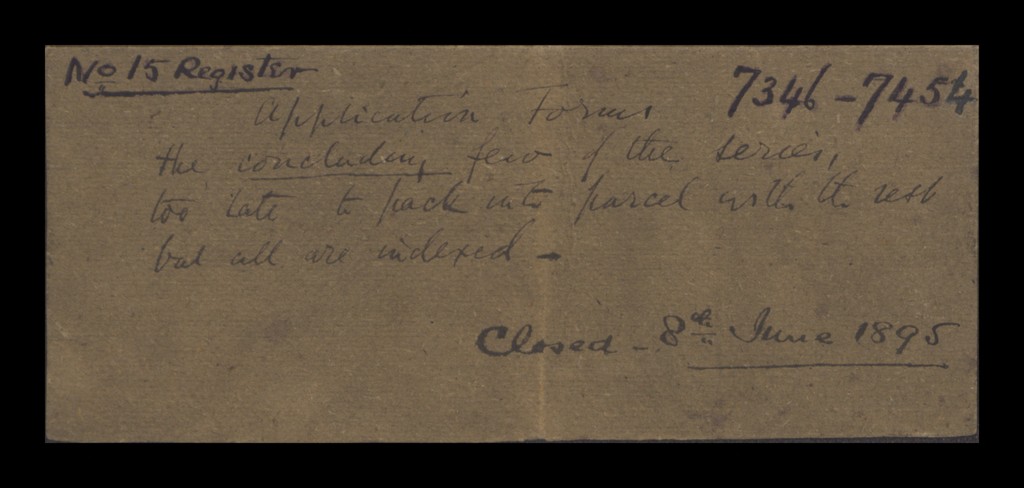 No 15 Register
7346 - 7454
Application Forms
the concluding few of the series,
too late to pack into parcel with the rest
but all are indexed -
Closed - 8th June 1895